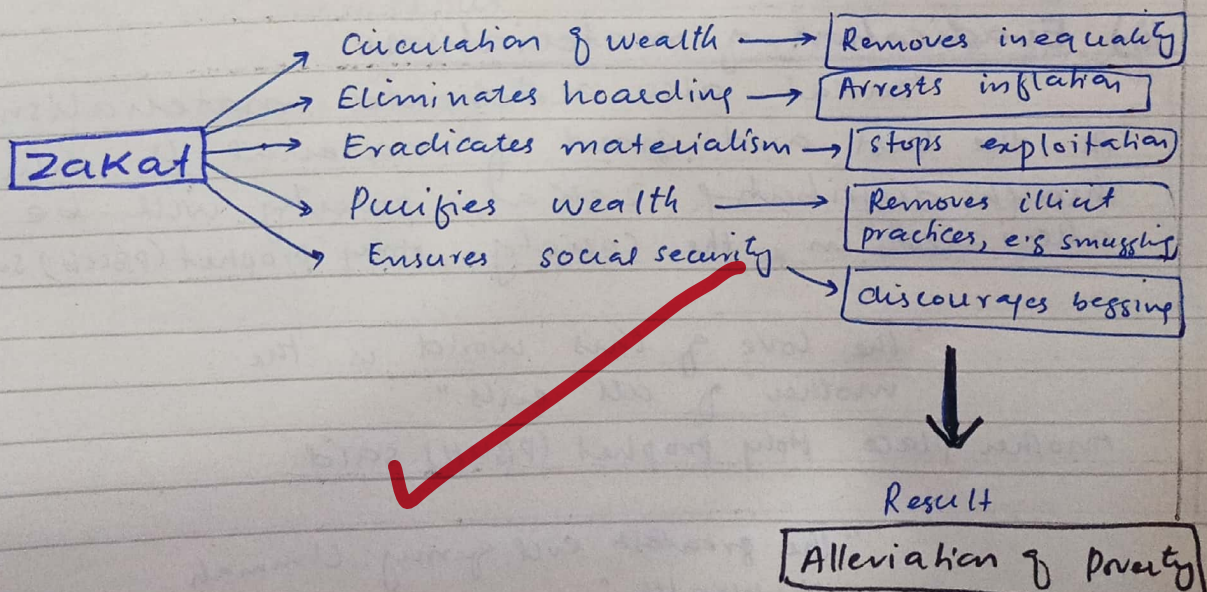 Circulation of wealth → Removes inequality
Eliminates hoarding → Arrests inflation
Zakat
Eradicates materialism → Stops exploitation
Purifies wealth → Removes illicit
practices, e.g smuggling
Ensures social security
discourages begging
Result
Alleviation of Poverty